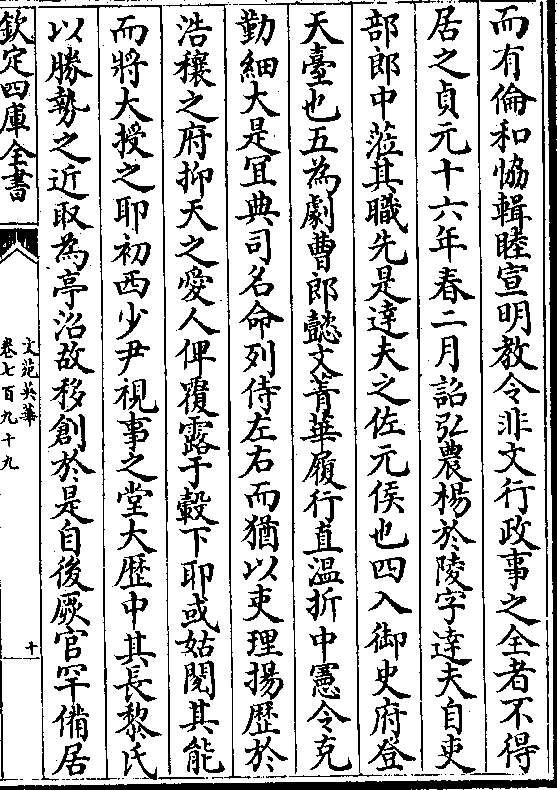 而有倫和協輯睦宣明教令非文行政事之全者不得
居之貞元十六年春二月詔弘農楊於陵字達夫自吏
部郎中蒞其職先是達夫之佐元侯也四入御史府登
天臺也五為劇曹郎懿文菁華履行直溫折中憲令克
勤細大是宜典司名命列侍左右而猶以吏理揚歷於
浩穰之府抑天之愛人俾覆露于轂下耶或姑閱其能
而將大授之耶初西少尹視事之堂大歴中其長黎氏
以勝勢之近取為亭沼故移創於是自後厥官罕備居
欽定四庫全書
文苑英華
卷七百九十九
十